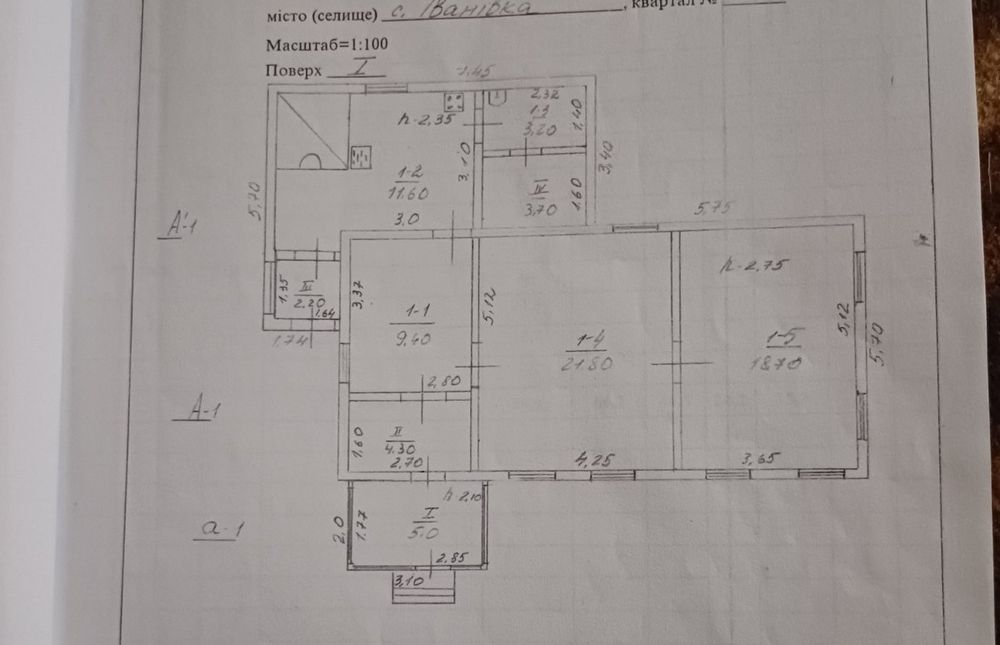 місто (селище) с. Іванівка, квартал №
Масштаб=1:100
Поверх I
1,45
h-2,35
1-2
11.60
3,0
3,10
2,32
1-3
3,20
1,40
3,40
IV
3,70
1,60
5,70
A'-1
1,35
III
2.20
1,64
1,74
3,37
1-1
9,40
2,80
5,12
1-4
21.80
4,25
5,75
h-2,75
1-5
18,70
5,12
5,70
3,65
A-1
1,60
II
4.30
2,70
а-1
2,0
1,77
h 2,10
I
5.0
2,85
3,10